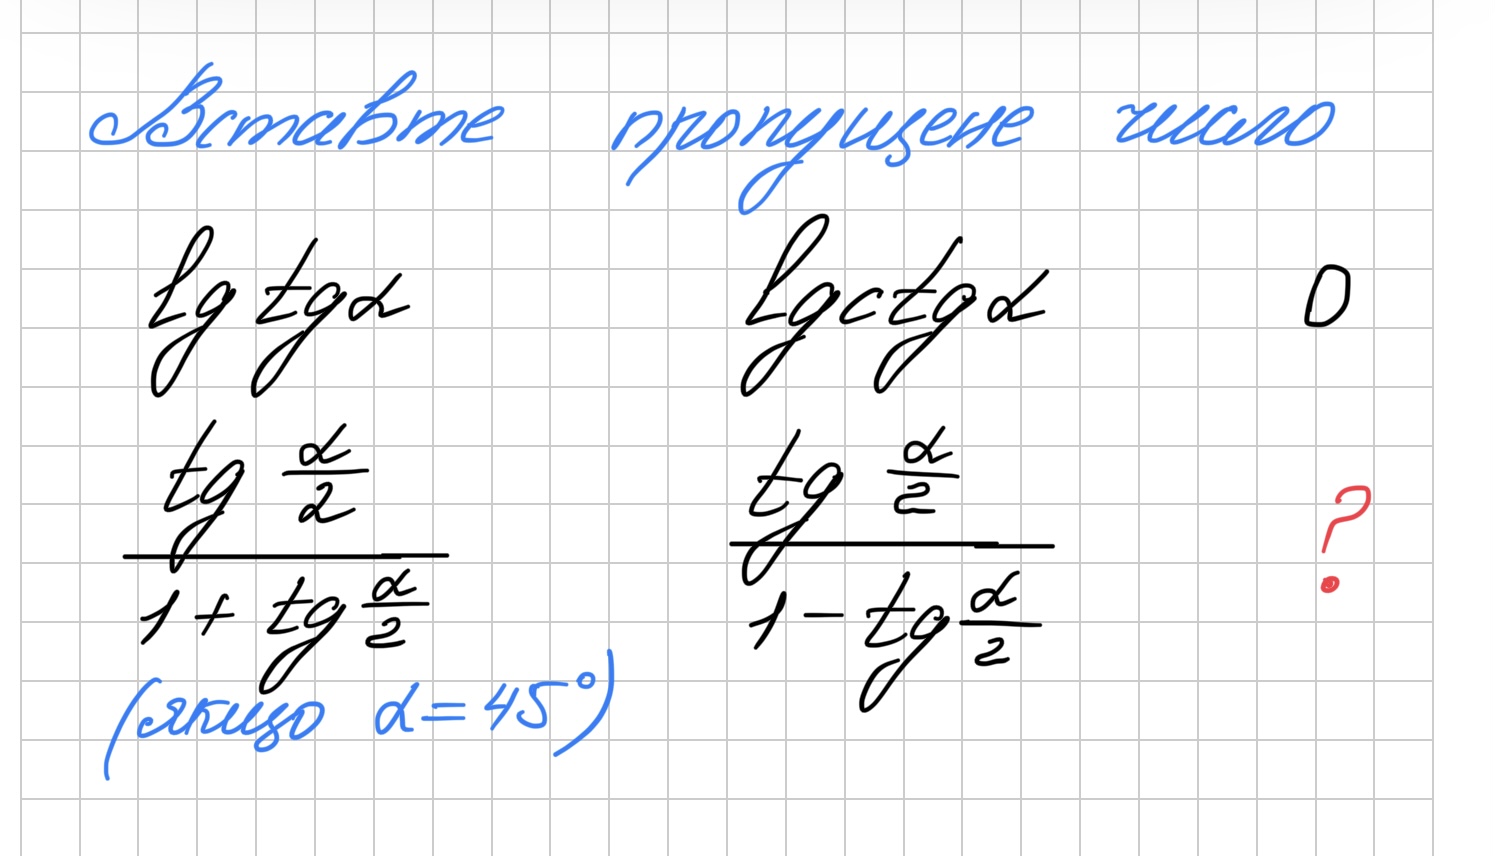 Вставте пропущене число
lg tgα lgctgα 0
tg α/2 tg α/2 ?
1 + tg α/2 1 - tg α/2
(якщо α = 45°)